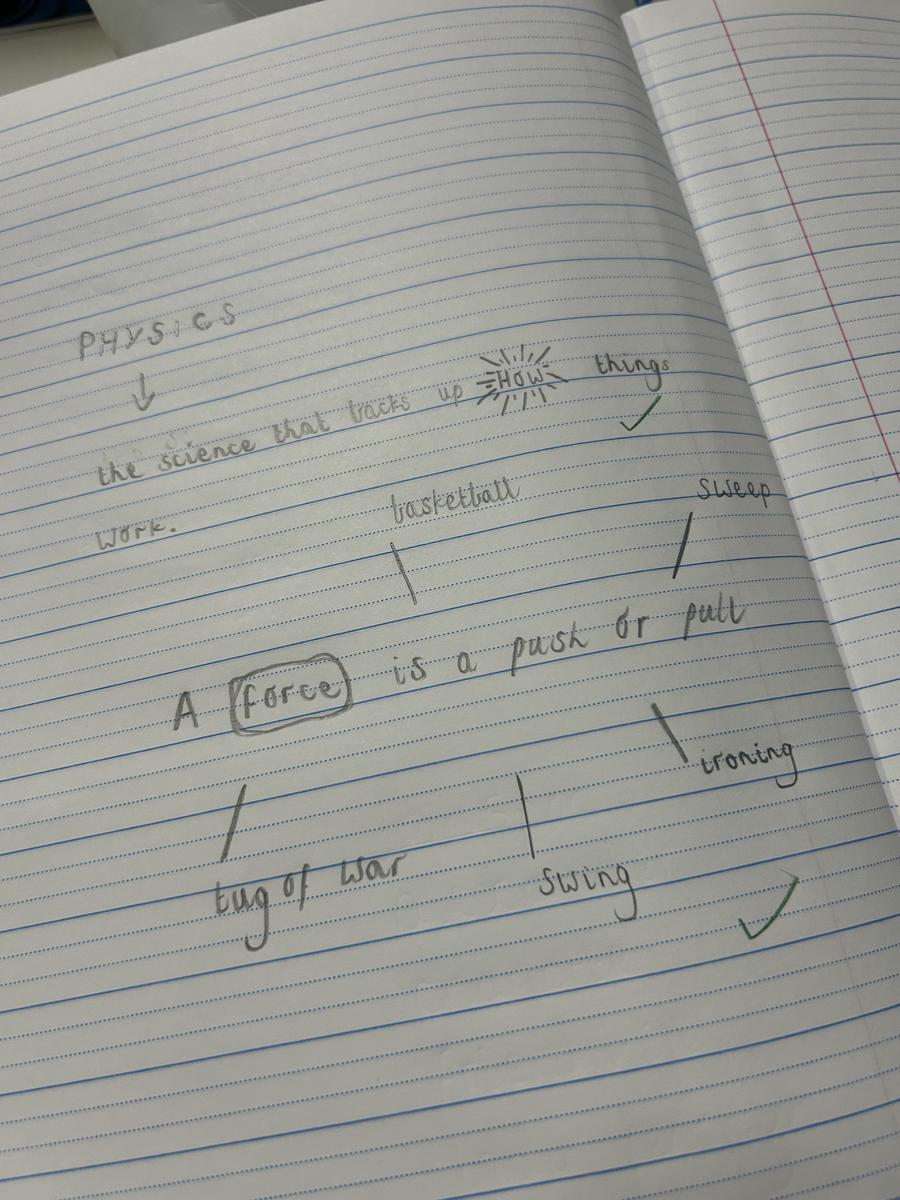 PHYSICS
the science that backs up HOW things
work.
basketball
sweep
A force is a push or pull
ironing
tug of war
swing